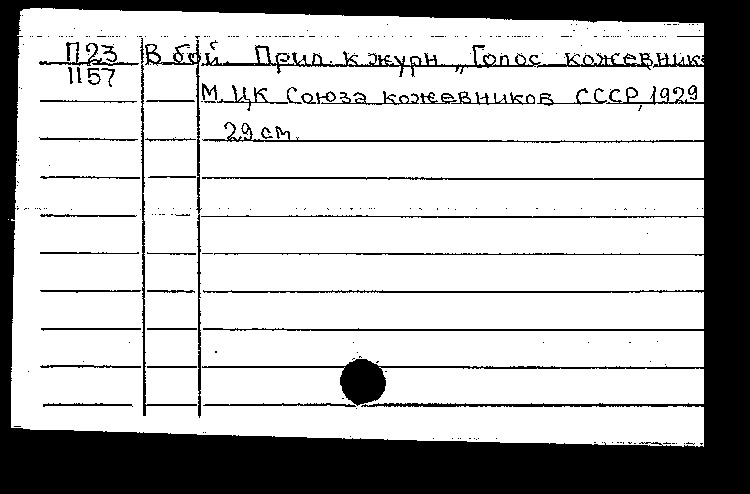 П23 В бой. Прил. к журн. „Голос кожевник
1157
М. ЦК Союза кожевников СССР, 1929
29 см.